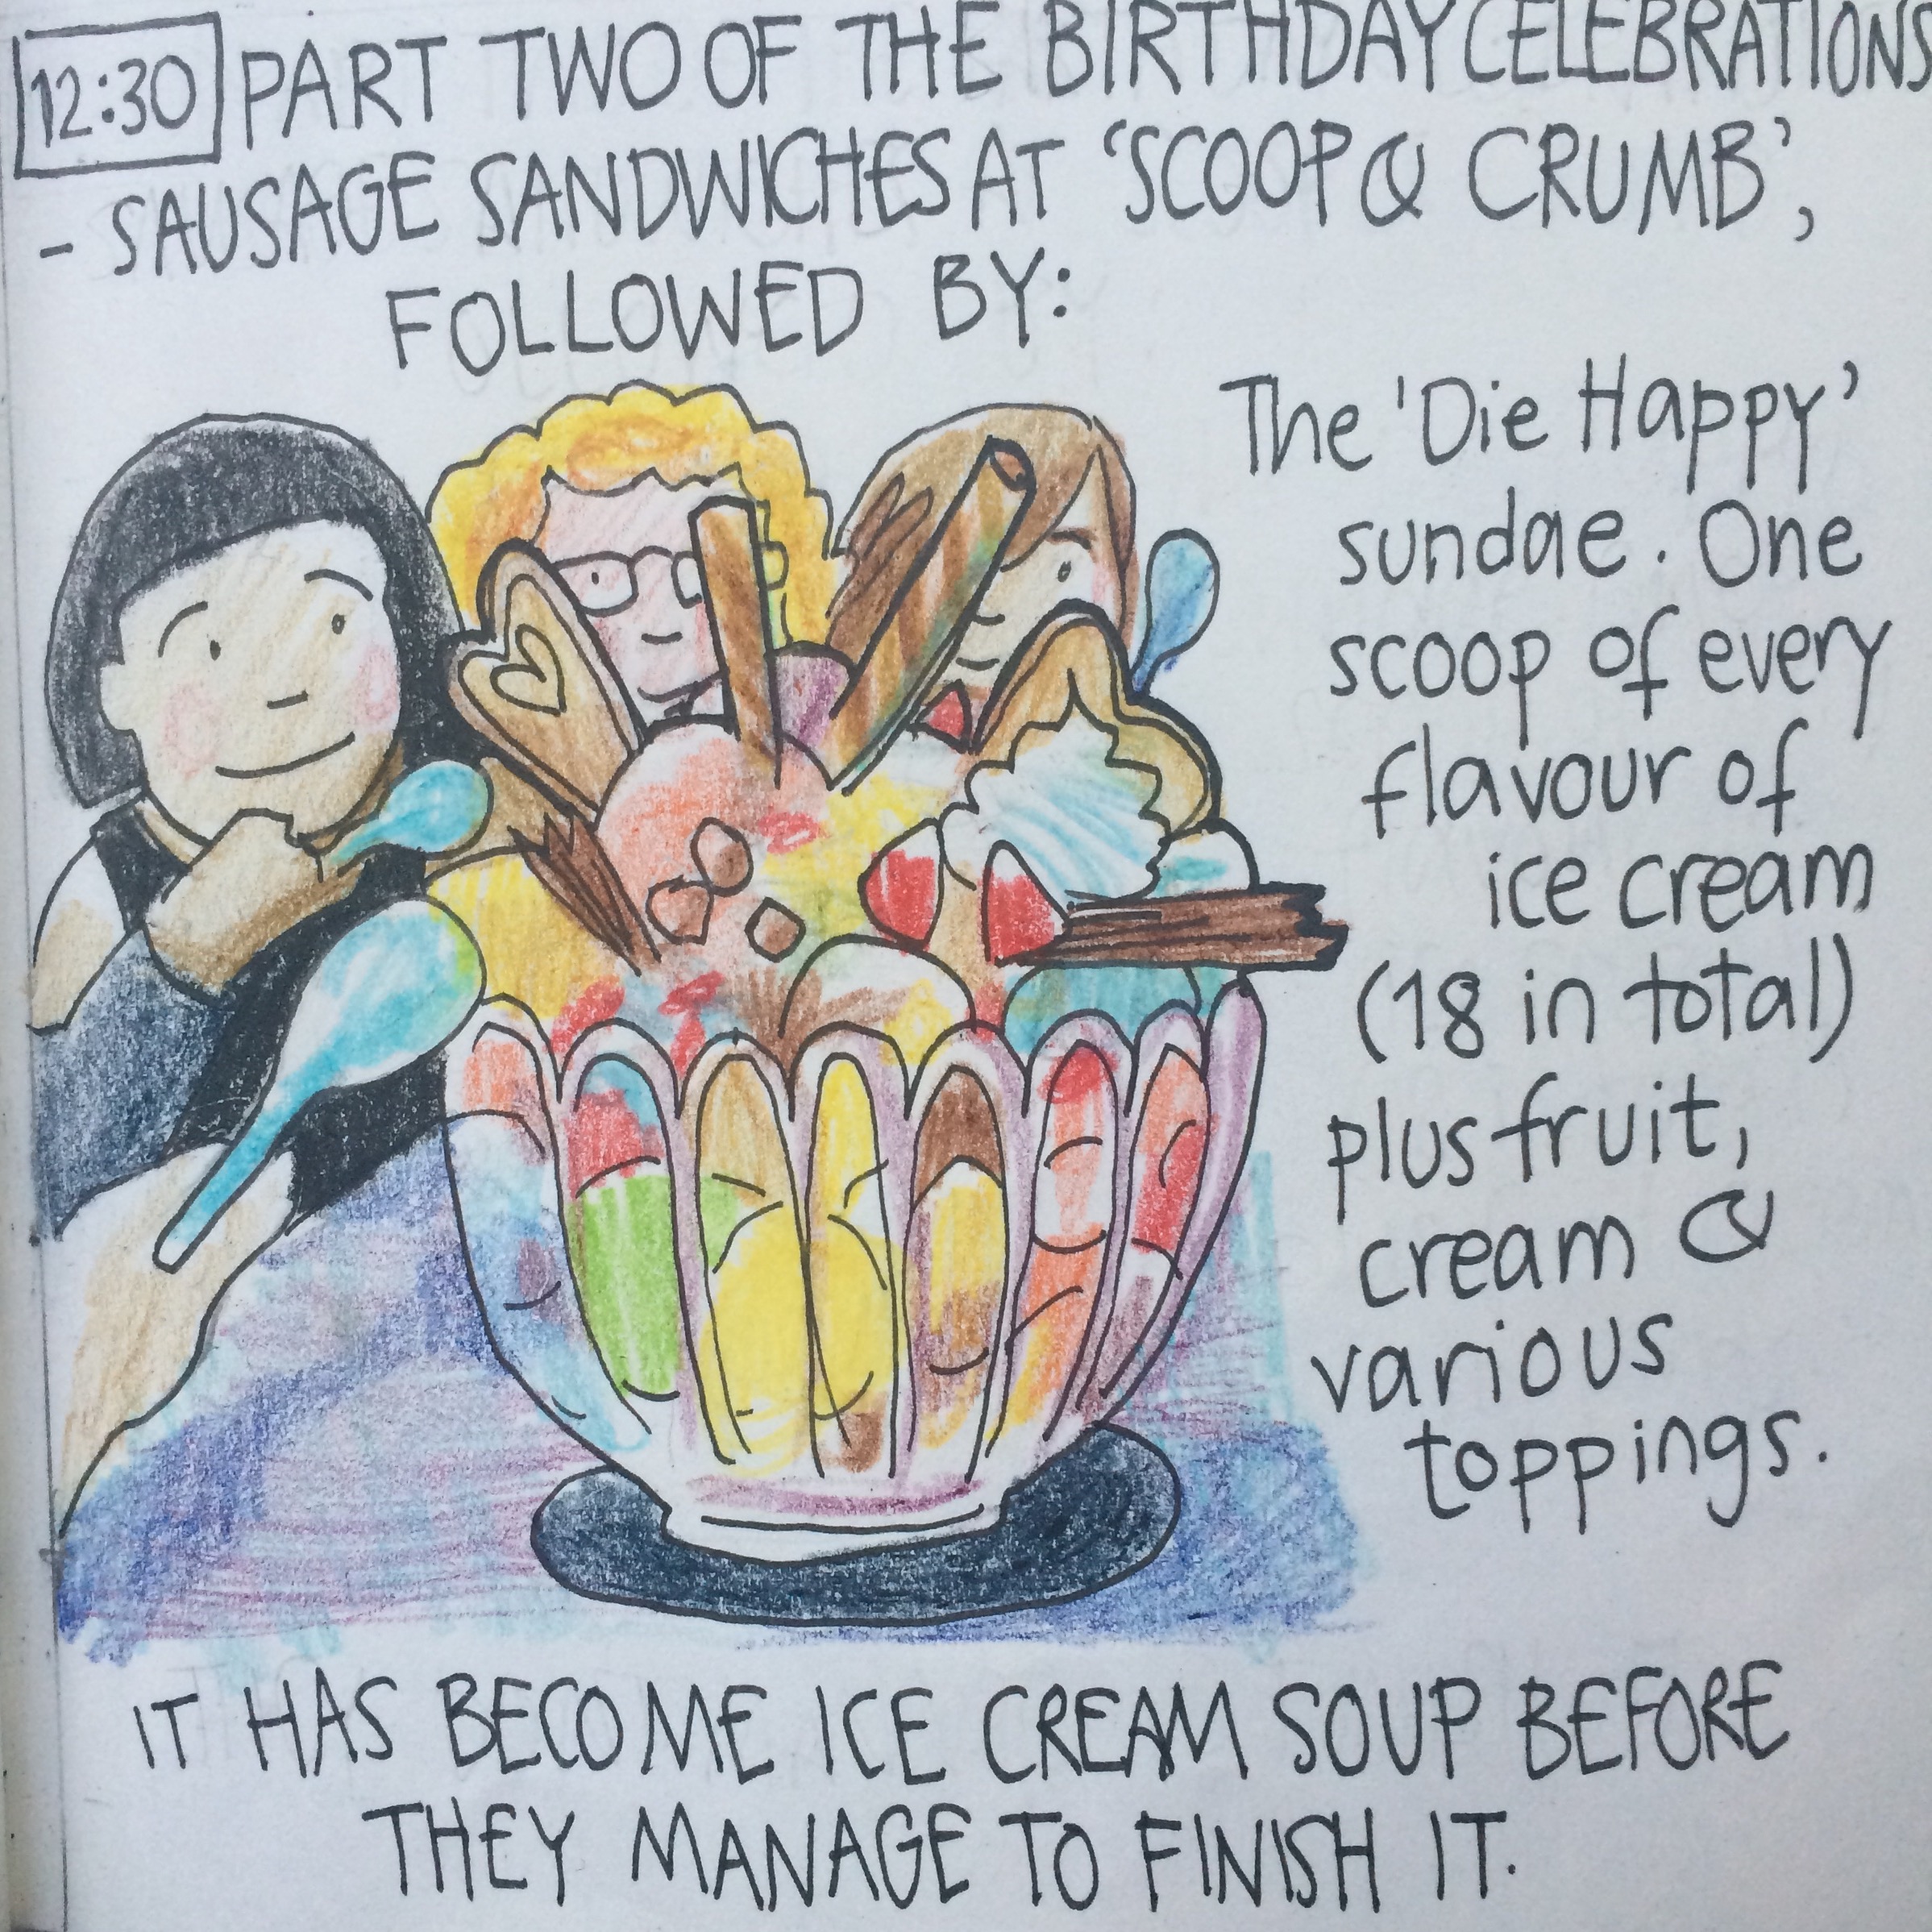 12:30 PART TWO OF THE BIRTHDAY CELEBRATIONS
- SAUSAGE SANDWICHES AT 'SCOOP & CRUMB',
FOLLOWED BY:
The 'Die Happy'
sundae. One
scoop of every
flavour of
ice cream
(18 in total)
plus fruit,
cream &
various
toppings.
IT HAS BECOME ICE CREAM SOUP BEFORE
THEY MANAGE TO FINISH IT.